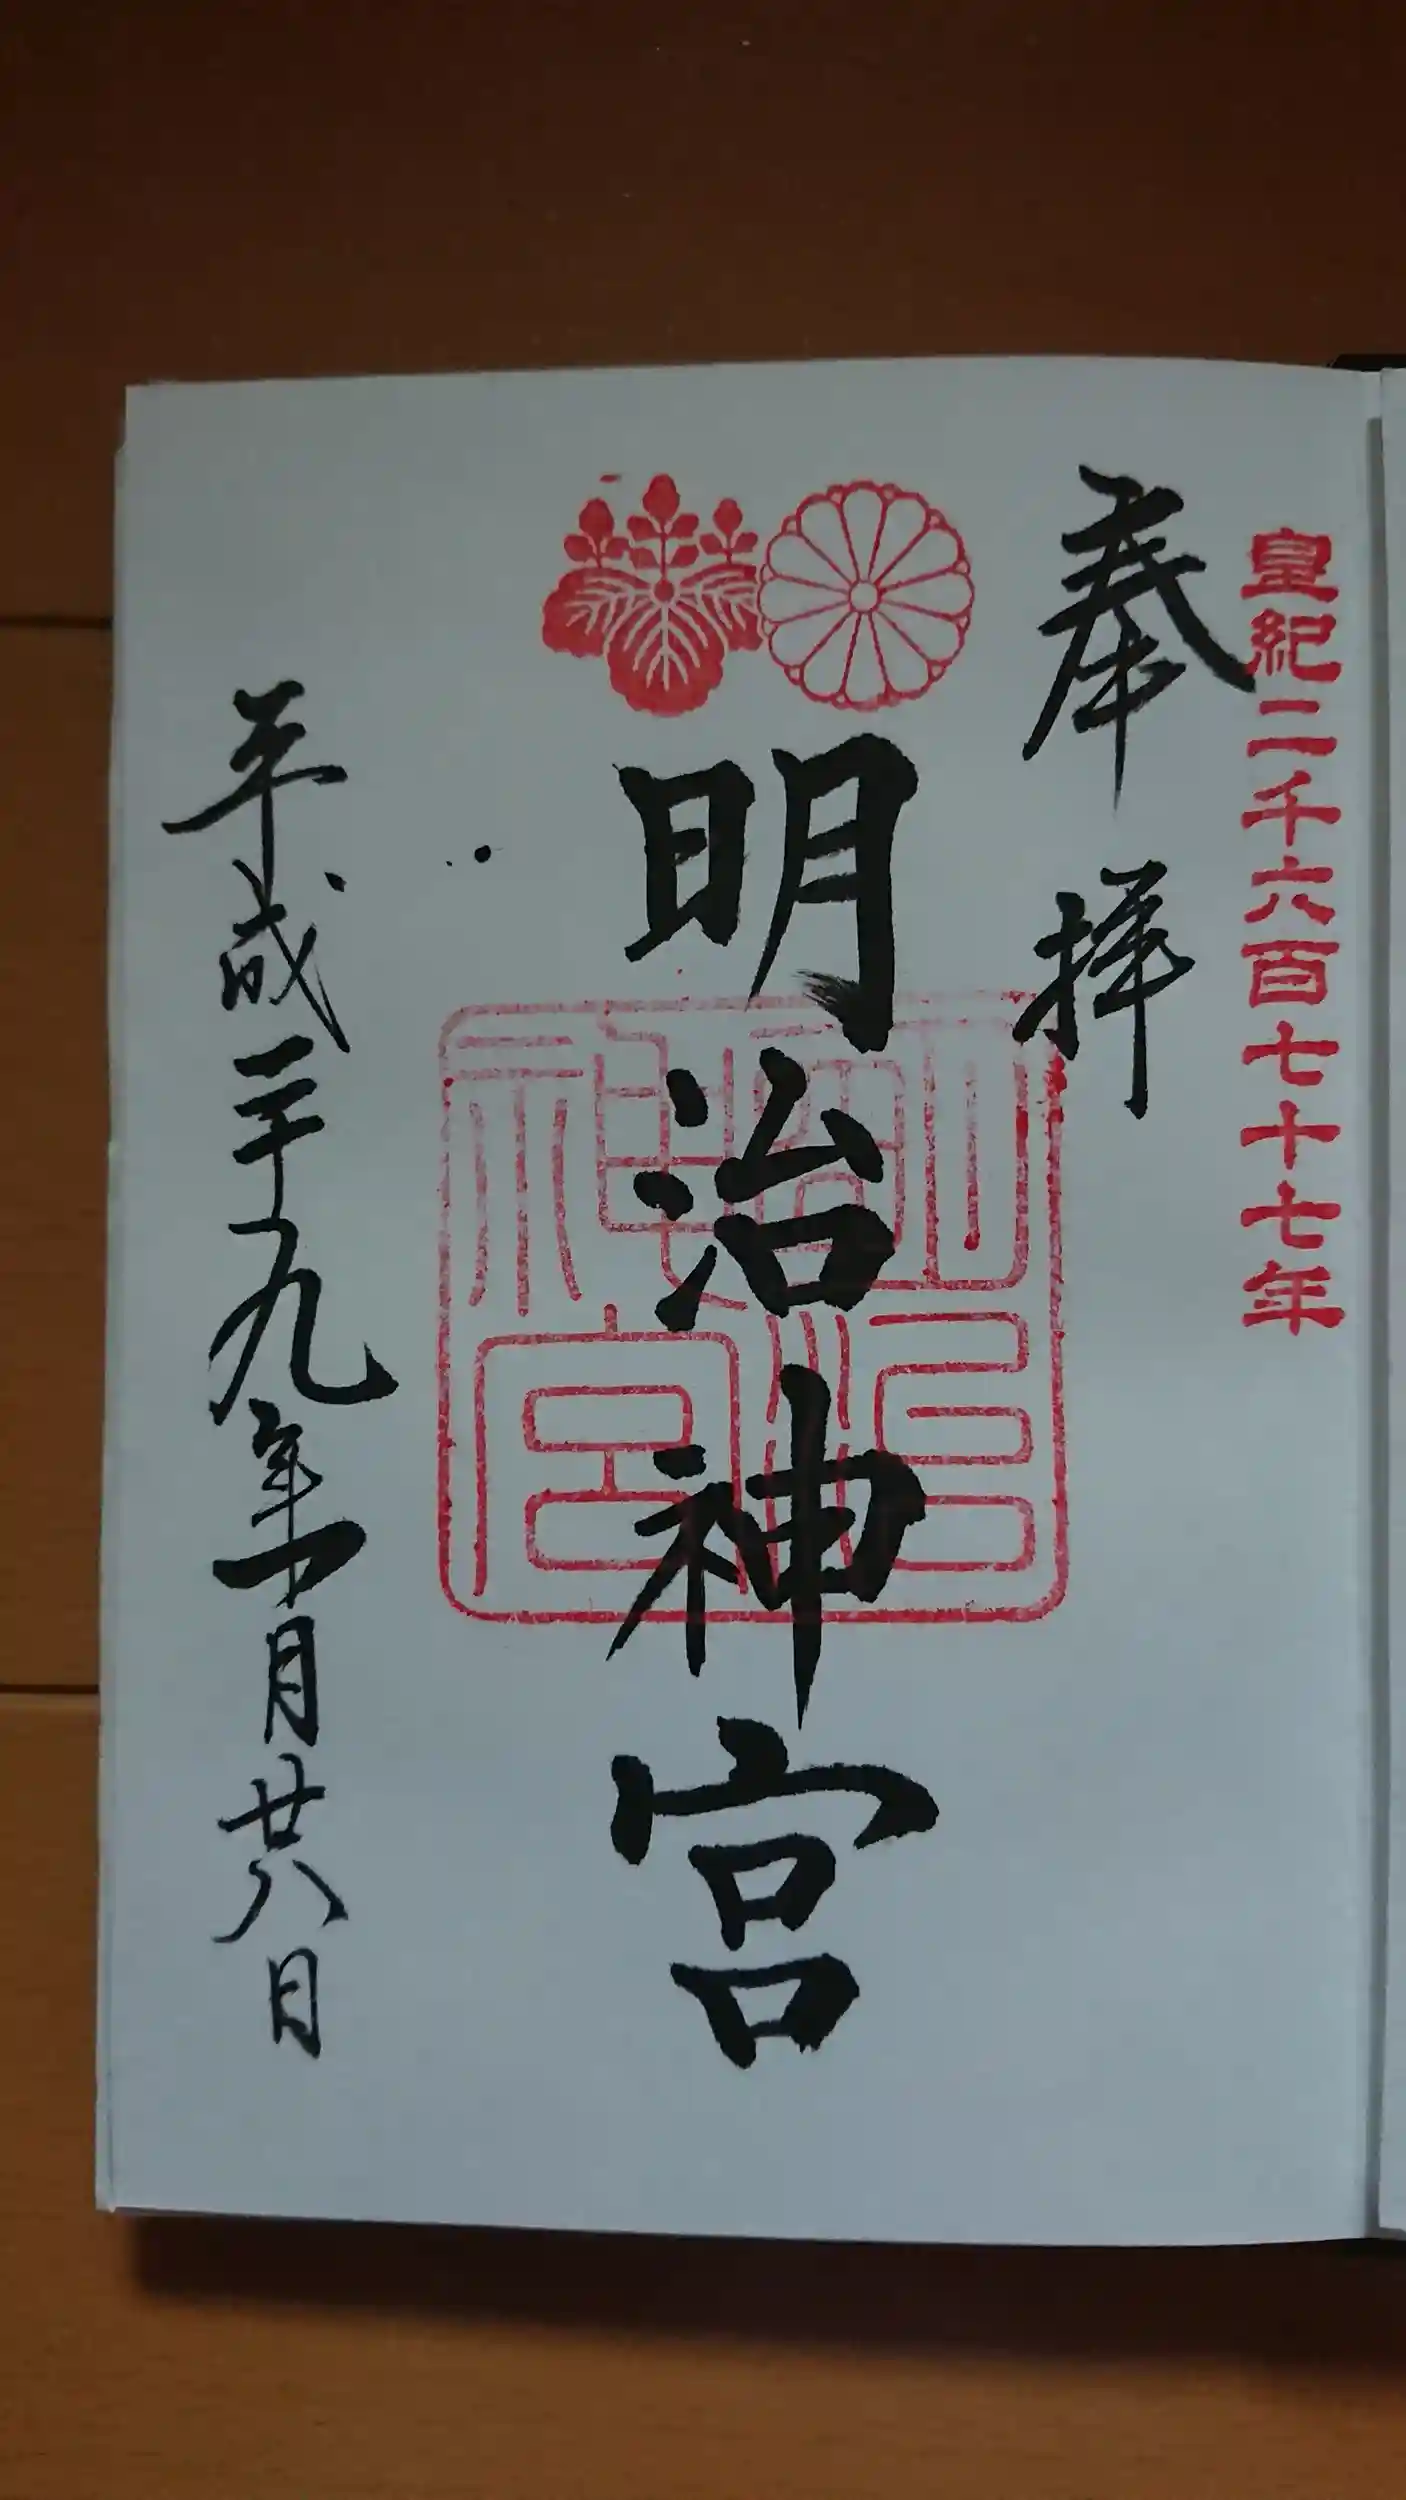 皇紀二千六百七十七年
奉拝
明治神宮
明治
神宮
平成二十九年十月廿八日